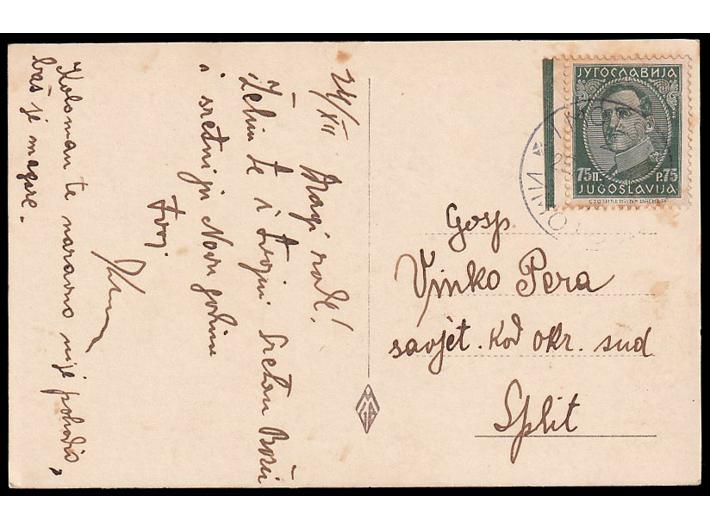 24/XII
Dragi rode!
Želim te i tvojin sretan Božić
i sretniju Novu godinu
Tvoj
Koloman te naravno nije pohodio,
baš je magare.
ЈУГОСЛАВИЈА
75п. P.75
JUGOSLAVIJA
Gosp.
Vinko Pera
savjet. kod okr. sud
Split